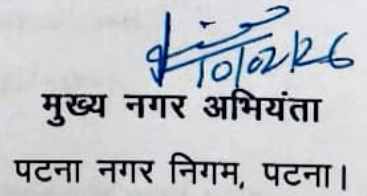 10/02/26
मुख्य नगर अभियंता
पटना नगर निगम, पटना।